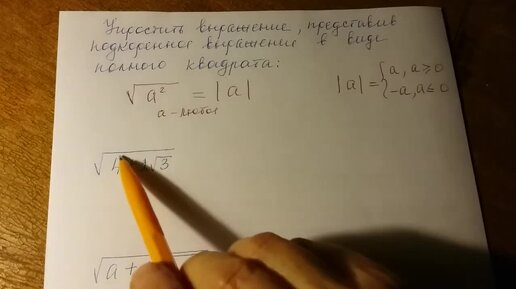 Упростить выражение, представив
подкоренное выражение в виде
полного квадрата:
√a² = |a|
a – любое
|a| = { a, a ≥ 0
-a, a ≤ 0
√3
√a +